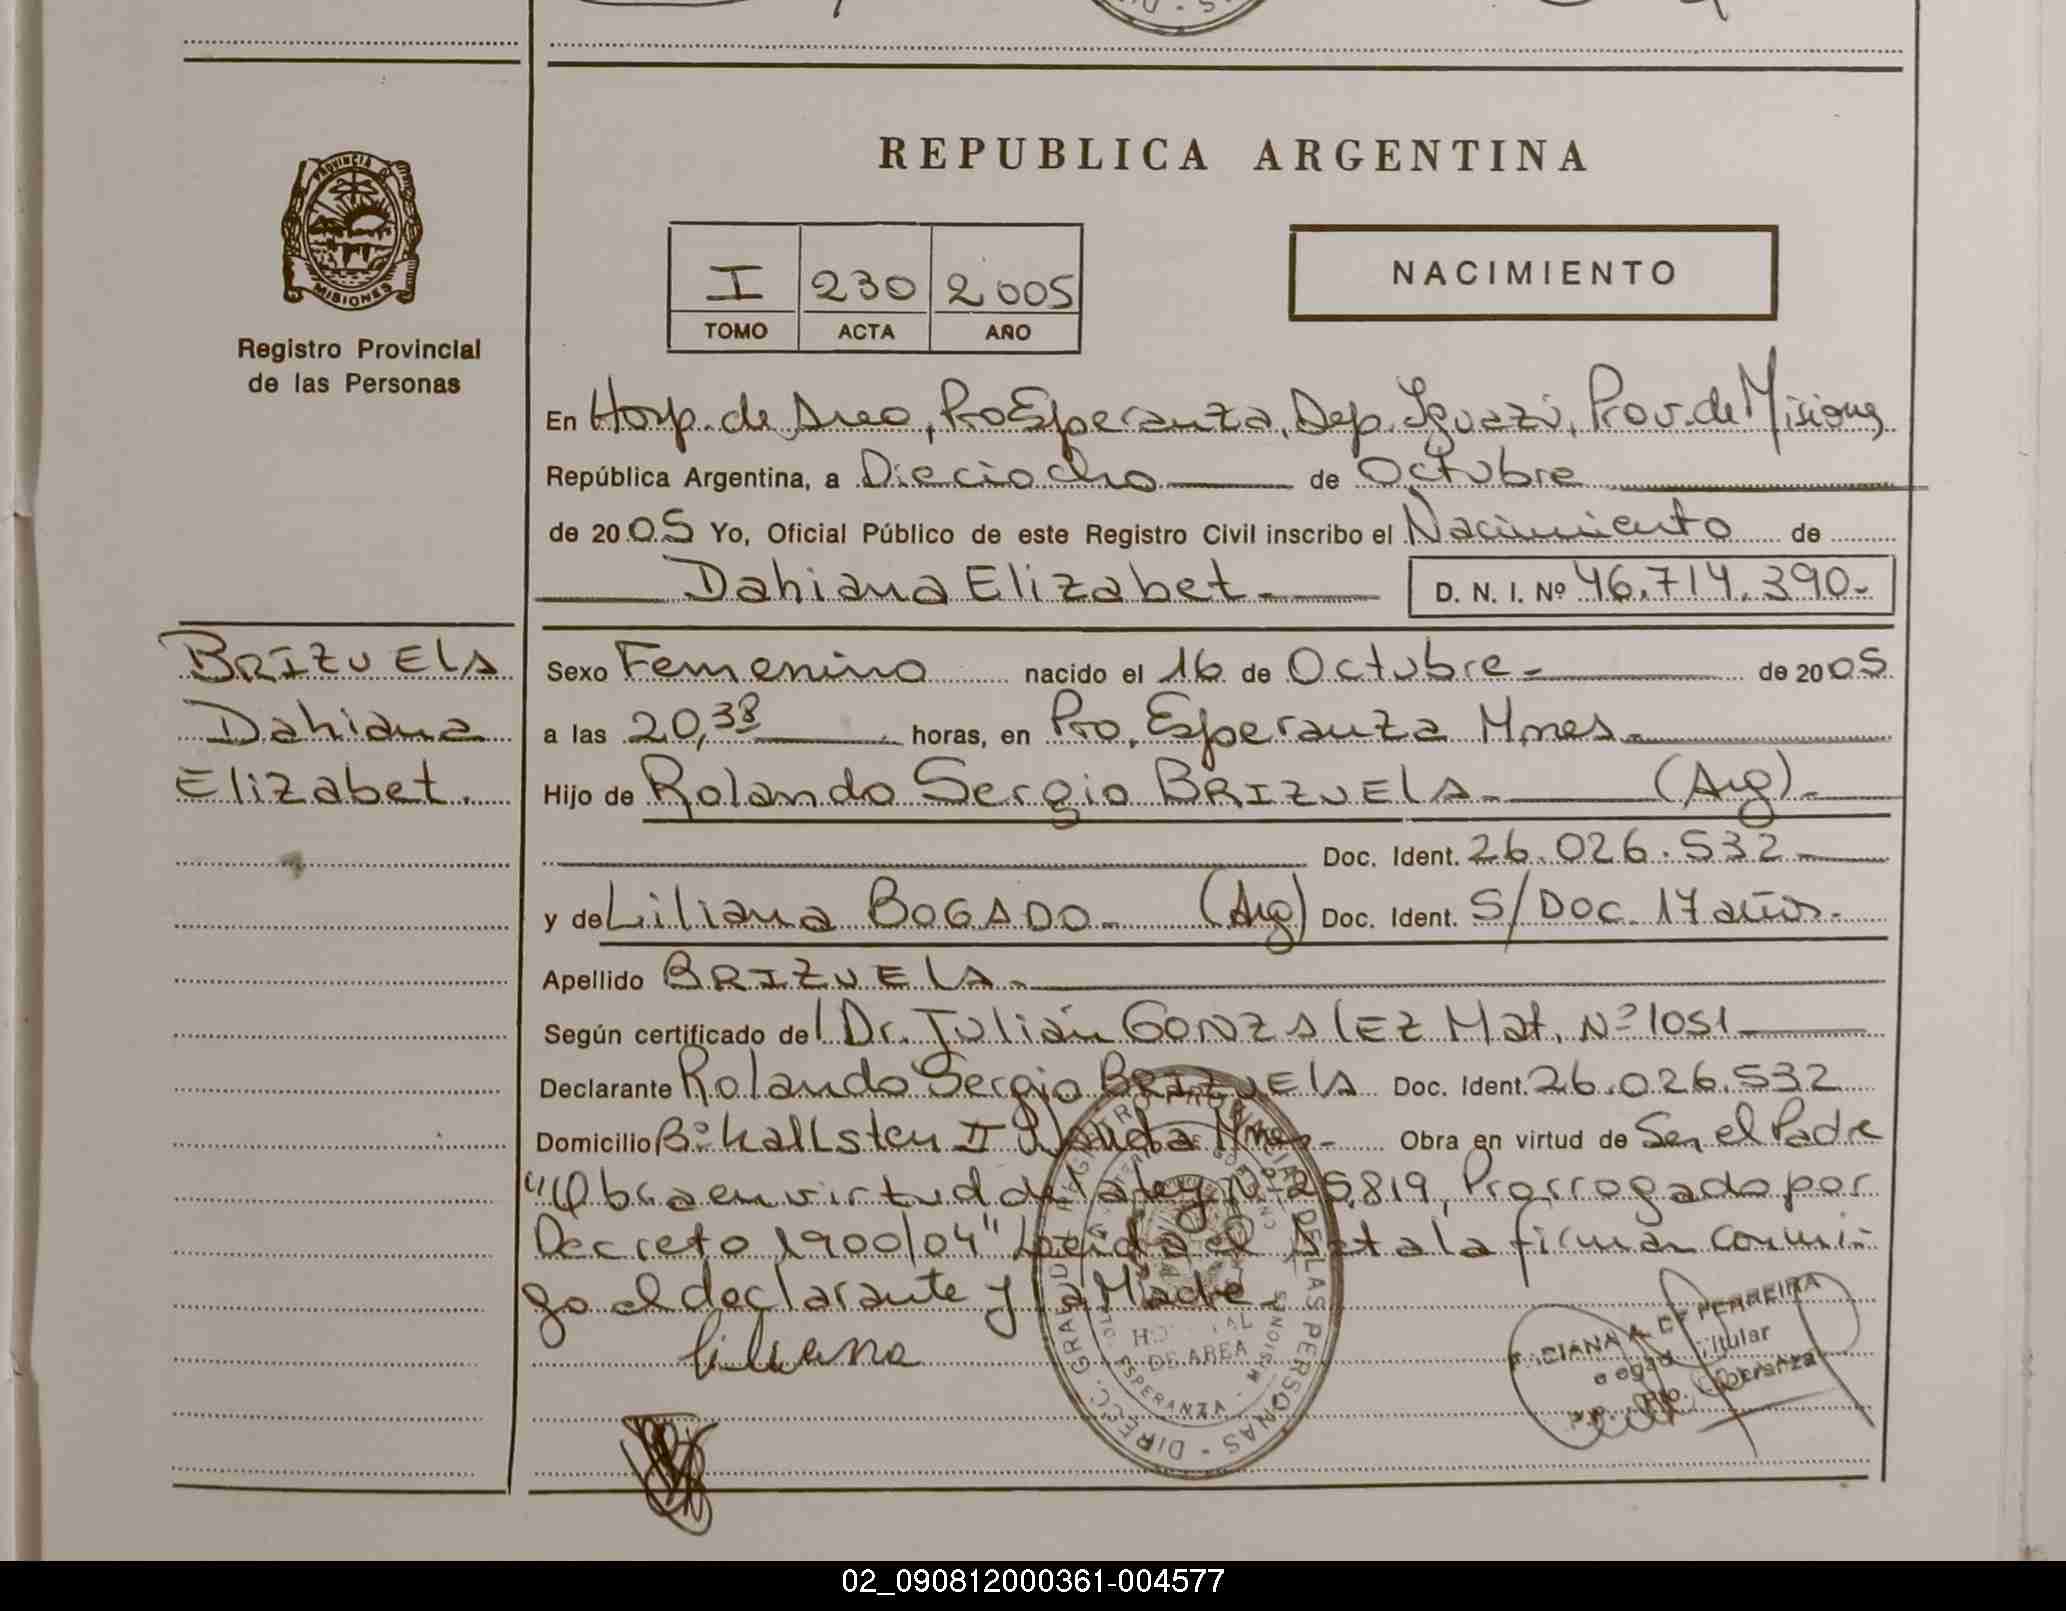 REPUBLICA ARGENTINA
PROVINCIA
MISIONES
Registro Provincial
de las Personas
I 230 2005
TOMO ACTA AÑO
NACIMIENTO
En Hosp. de Area, Pto Esperanza, Dep. Iguazú, Prov. de Misiones
República Argentina, a Dieciocho de Octubre
de 2005 Yo, Oficial Público de este Registro Civil inscribo el Nacimiento de
Dahiana Elizabet.- D. N. I. Nº 46.714.390-
BRIZUELA
Dahiana
Elizabet.
Sexo Femenino nacido el 16 de Octubre - de 2005
a las 20,38 horas, en Pto. Esperanza Mnes.-
Hijo de Rolando Sergio BRIZUELA- (Arg).-
Doc. Ident. 26.026.532-
y de Liliana BOGADO- (Arg) Doc. Ident. S/Doc. 17 años.-
Apellido BRIZUELA.-
Según certificado del Dr. Julián GONZALEZ Mat. Nº 1051
Declarante Rolando Sergio BRIZUELA Doc. Ident. 26.026.532
Domicilio Bº Kallsten II Wanda Mnes.- Obra en virtud de Ser el Padre
"Obra en virtud de la ley Nº 25.819, Prorrogado por
Decreto 1900/04" Leida el Acta la firman conmi-
go el declarante y la Madre
Liliana
DIRECC. GRAL. DEL REGISTRO PROVINCIAL DE LAS PERSONAS
HOSPITAL
DE AREA
ESPERANZA - MISIONES
FERREIRA
Titular
Pto. Esperanza
02_090812000361-004577